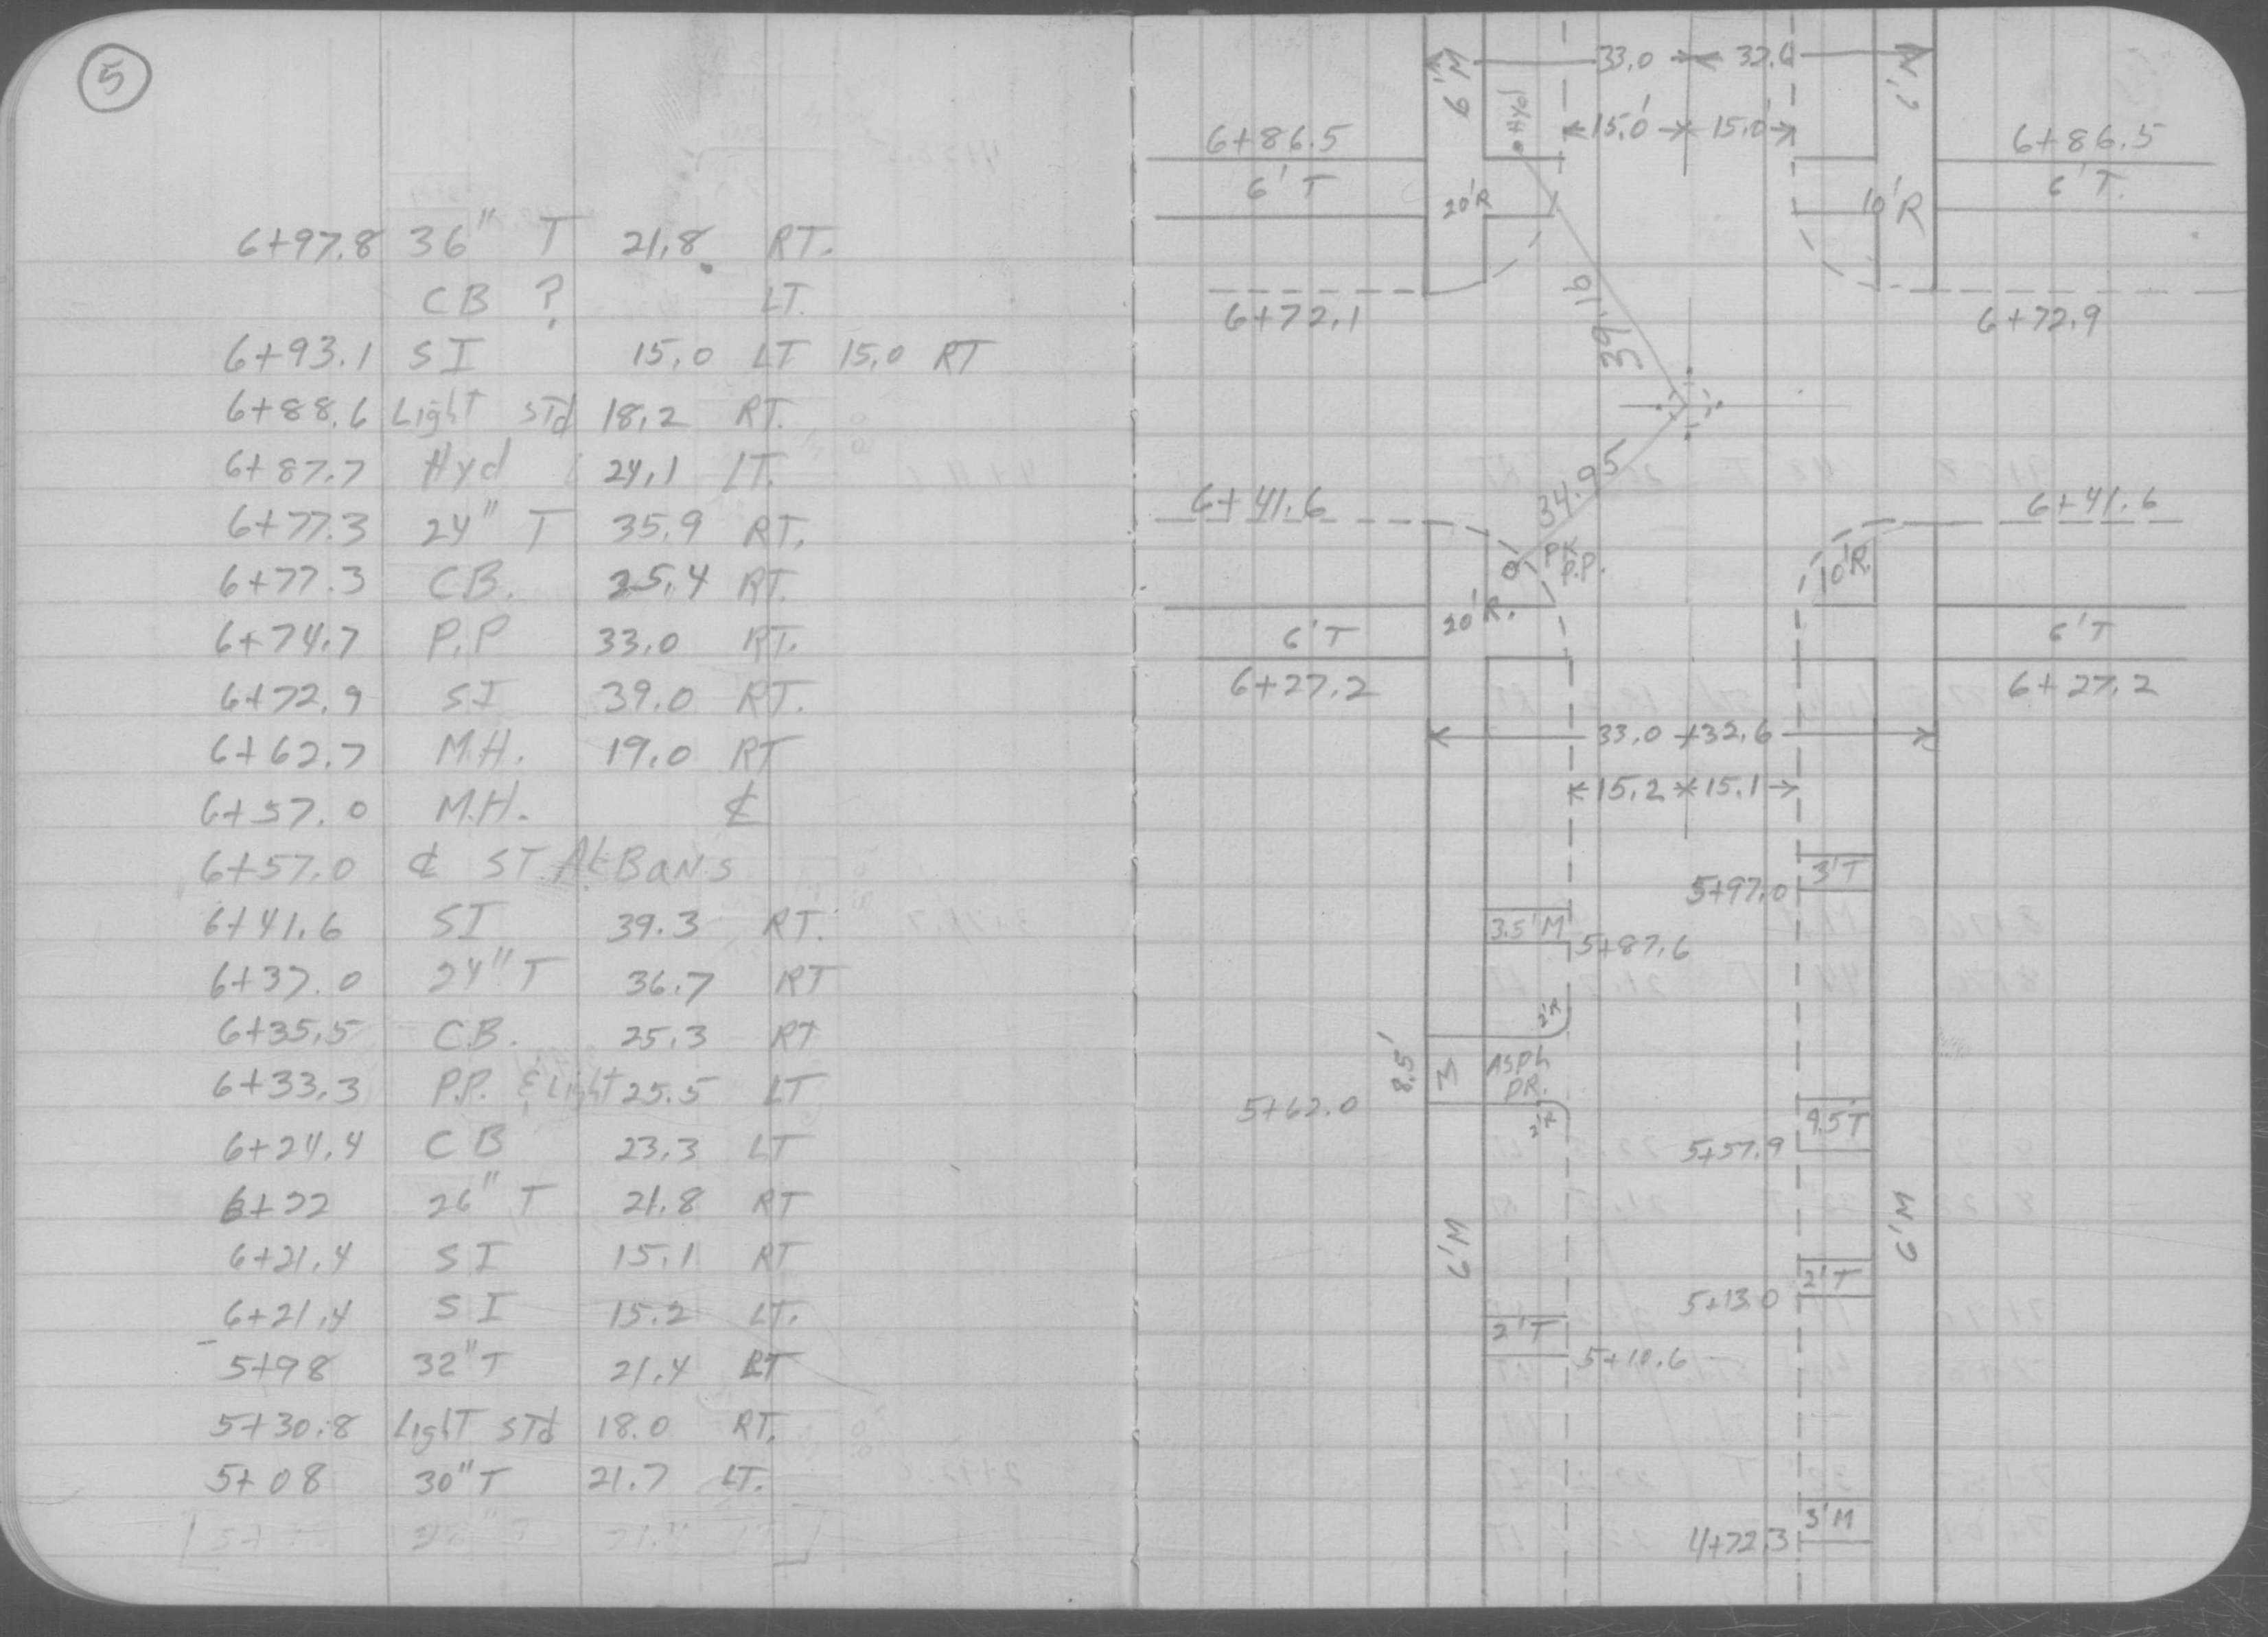 5
6+97.8 36" T 21.8 RT.
CB ? LT.
6+93.1 SI 15.0 LT 15.0 RT
6+88.6 Light STd 18.2 RT.
6+87.7 Hyd 24.1 LT.
6+77.3 24" T 35.9 RT.
6+77.3 CB. 25.4 RT.
6+74.7 P.P 33.0 RT.
6+72.9 SI 39.0 RT.
6+62.7 M.H. 19.0 RT
6+57.0 M.H. ₵
6+57.0 ₵ ST. AlBans
6+41.6 SI 39.3 RT.
6+37.0 24" T 36.7 RT
6+35.5 C.B. 25.3 RT
6+33.3 P.P. & Light 25.5 LT
6+24.4 CB 23.3 LT
6+22 26" T 21.8 RT
6+21.4 SI 15.1 RT
6+21.4 SI 15.2 LT.
5+98 32" T 21.4 RT
5+30.8 Light STd 18.0 RT.
5+08 30" T 21.7 LT.
6'M 33.0 6'M
Hyd 15.0' 15.0'
6+86.5 6+86.5
6'T 20'R 10'R 6'T.
6+72.1 6+72.9
39.16
34.95
6+41.6 6+41.6
PK
P.P.
20'R. 10'R.
6'T 6'T
6+27.2 6+27.2
33.0 32.6
15.2 15.1
3'T
5+97.0
3.5'M
5+87.6
2'R
8.5' M Asph
DR.
5+62.0
2'R
9.5'T
5+57.9
6'M 6'M
2'T
5+13.0
2'T
5+10.6
3'M
4+72.3